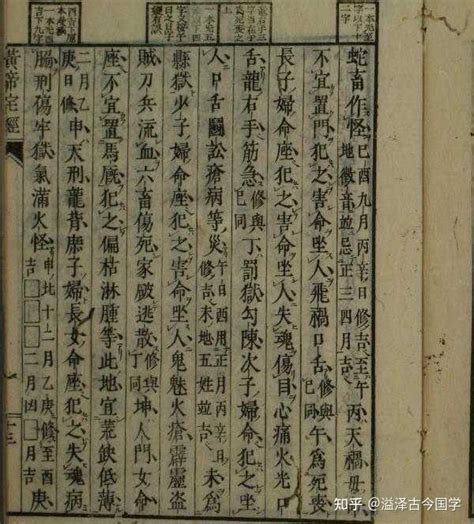 蛇畜作怪己酉九月丙辛日修吉至午地徵音竝忌正三四月吉丙天禍毋
不宜置門犯之害命坐人飛禍口舌同午為死喪
長子婦命座犯之害命坐人失魂傷目心痛火光口
舌龍右手筋急修與巳同丁罰獄勾陳次子婦命座犯之坐
人口舌鬭訟瘡病等災午日酉月丙辛日用修吉未地五姓竝吉
縣獄少子婦命座犯之害命坐人鬼魅火瘡霹靂盜
賊刀兵流血六畜傷死家敝逃散修與丁同坤人門女命
座不宜置馬廐犯之偏枯淋腫等此地宜荒缺低薄
二月乙庚日修吉申天刑龍背庶子婦長女命座犯之失魂
膓刑傷牢獄氣滿火怪申北十二月乙庚修至酉吉□□□二月凶□月吉庚
黃帝宅經 十三
知乎 @溢泽古今国学